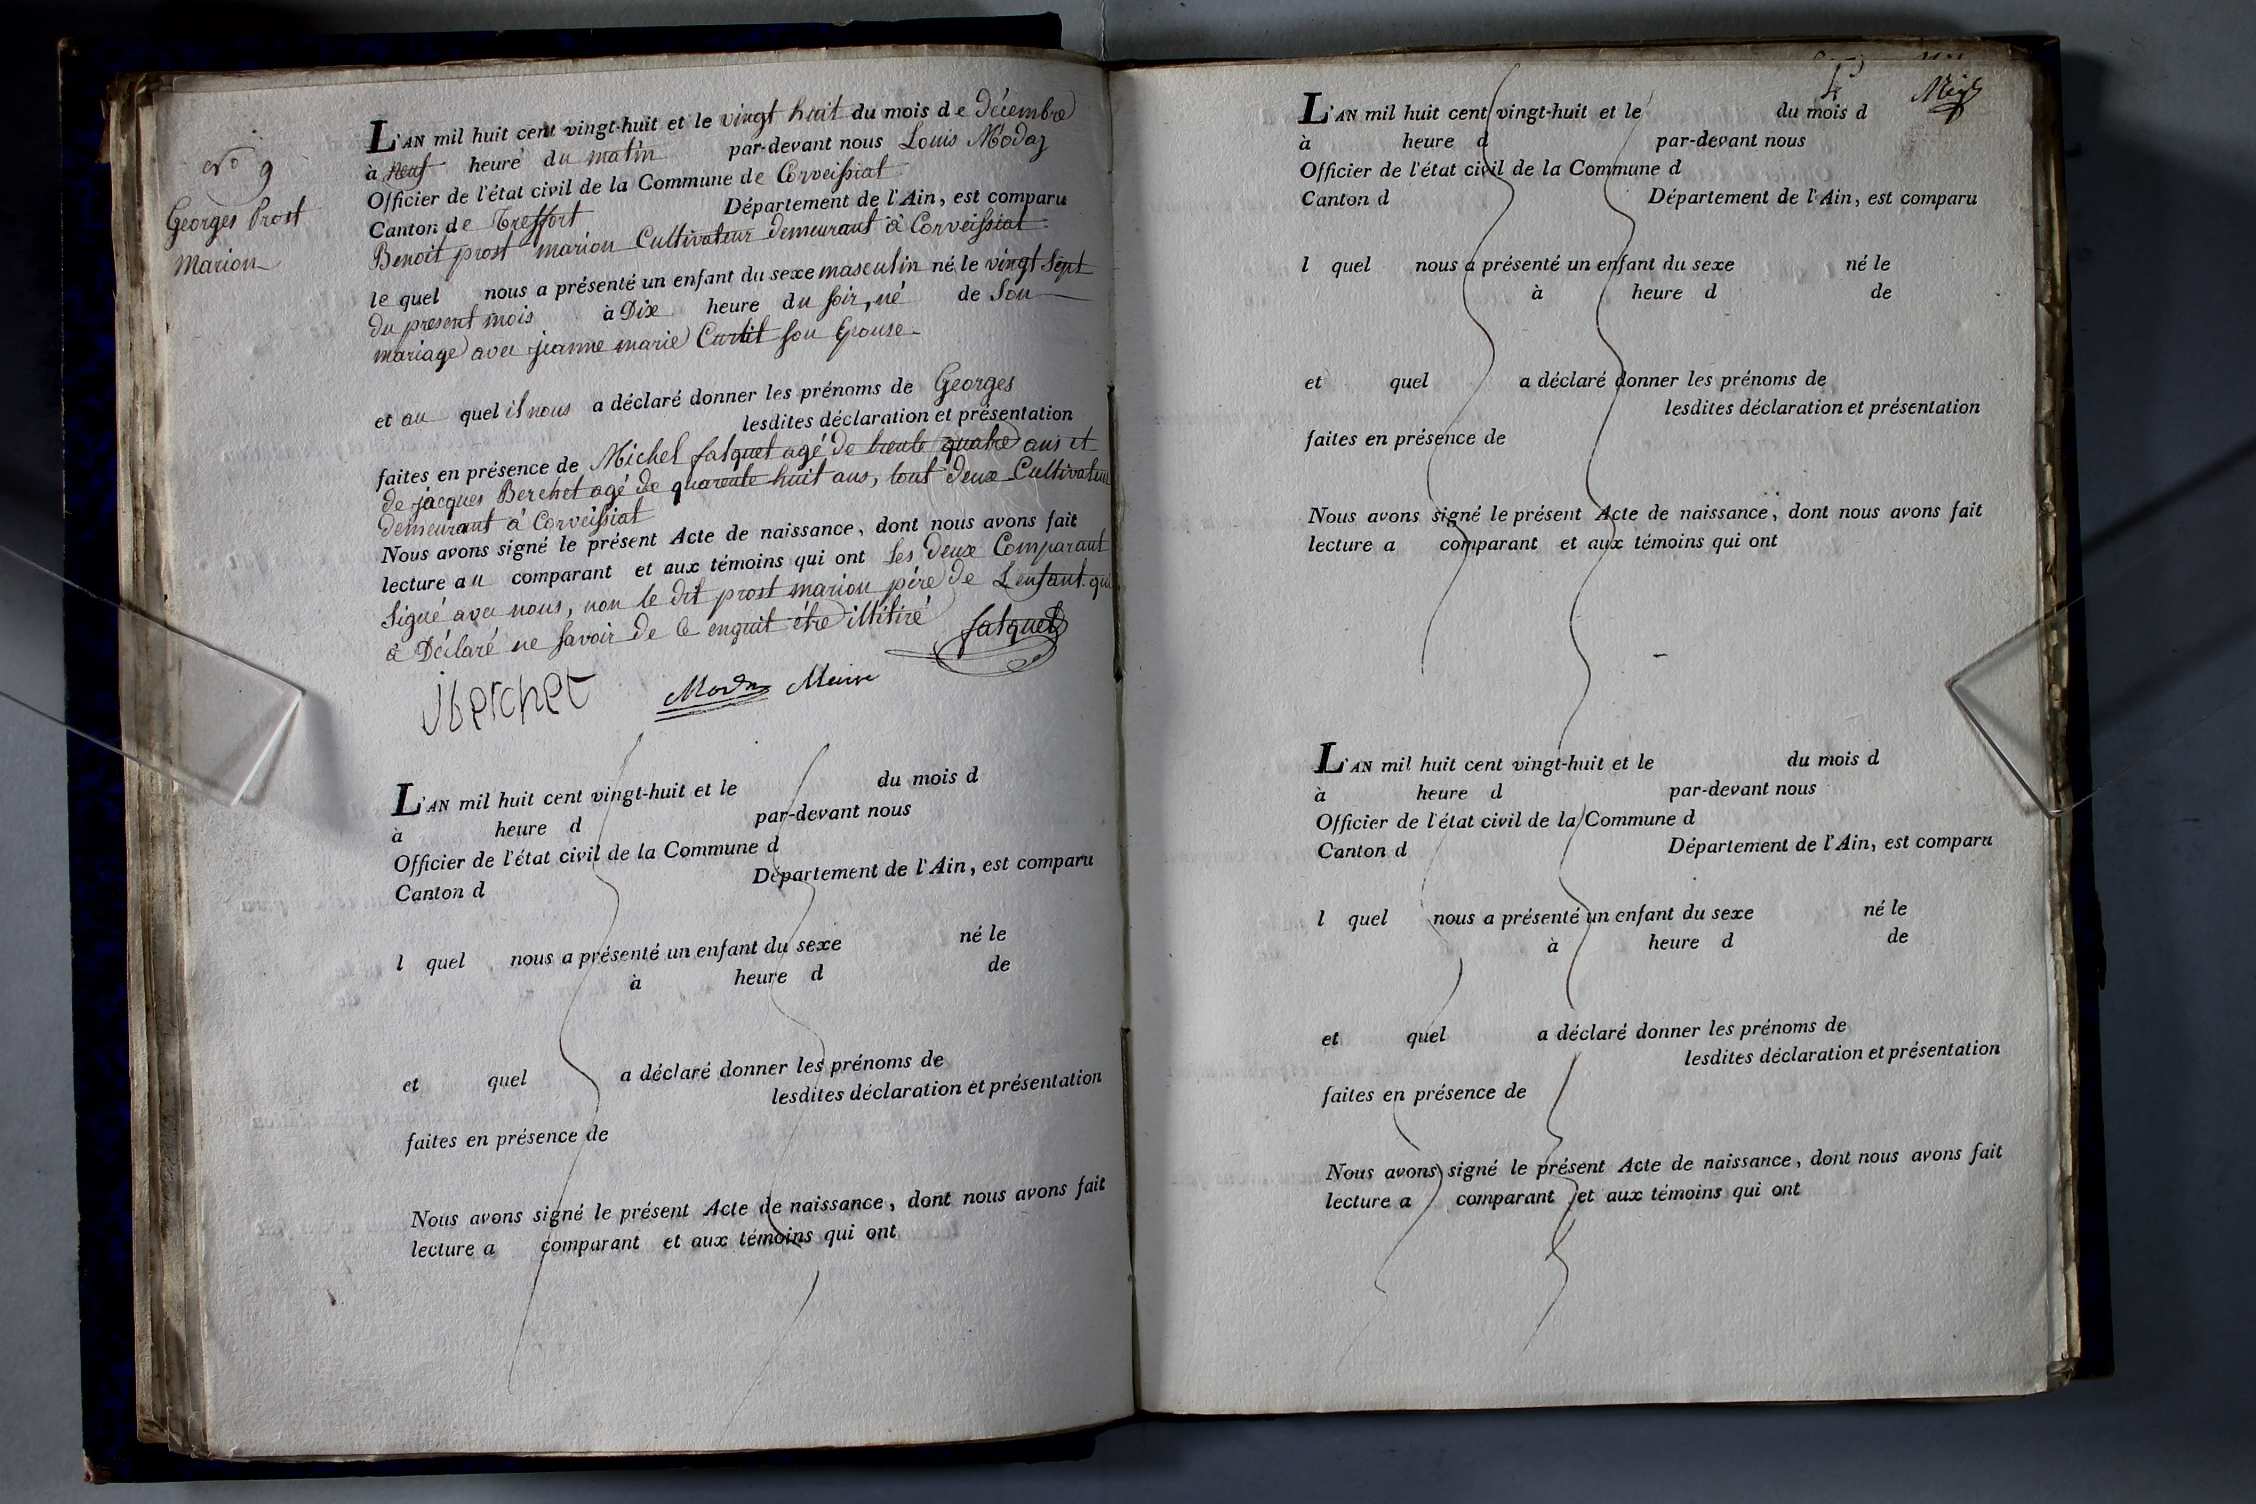 No 9
Georges Prost
Marion
L'AN mil huit cent vingt-huit et le vingt huit du mois de décembre
à neuf heure du matin par-devant nous Louis Moday
Officier de l'état civil de la Commune de Corveissiat
Canton de Treffort Département de l'Ain, est comparu
Benoit prost marion Cultivateur demeurant à Corveissiat
le quel nous a présenté un enfant du sexe masculin né le vingt Sept
du present mois à Dix heure du soir, né de Son
mariage avec jeanne marie son Epouse
et au quel il nous a déclaré donner les prénoms de Georges
lesdites déclaration et présentation
faites en présence de Michel falquet agé de trente quatre ans et
de jacques Berchet agé de quarente huit ans, tout deux Cultivateur
demeurant à Corveissiat
Nous avons signé le présent Acte de naissance, dont nous avons fait
lecture au comparant et aux témoins qui ont Les deux Comparant
Signé avec nous, non le dit prost marion pére de L'enfant qui
à Déclaré ne savoir de ce enquit étre illitiré
falquet
jberchet
Moday Maire
L'AN mil huit cent vingt-huit et le du mois d
à heure d par-devant nous
Officier de l'état civil de la Commune d
Canton d Département de l'Ain, est comparu
l quel nous a présenté un enfant du sexe né le
à heure d de
et quel a déclaré donner les prénoms de
lesdites déclaration et présentation
faites en présence de
Nous avons signé le présent Acte de naissance, dont nous avons fait
lecture a comparant et aux témoins qui ont
L'AN mil huit cent vingt-huit et le du mois d
à heure d par-devant nous
Officier de l'état civil de la Commune d
Canton d Département de l'Ain, est comparu
l quel nous a présenté un enfant du sexe né le
à heure d de
et quel a déclaré donner les prénoms de
lesdites déclaration et présentation
faites en présence de
Nous avons signé le présent Acte de naissance, dont nous avons fait
lecture a comparant et aux témoins qui ont
L'AN mil huit cent vingt-huit et le du mois d
à heure d par-devant nous
Officier de l'état civil de la Commune d
Canton d Département de l'Ain, est comparu
l quel nous a présenté un enfant du sexe né le
à heure d de
et quel a déclaré donner les prénoms de
lesdites déclaration et présentation
faites en présence de
Nous avons signé le présent Acte de naissance, dont nous avons fait
lecture a comparant et aux témoins qui ont